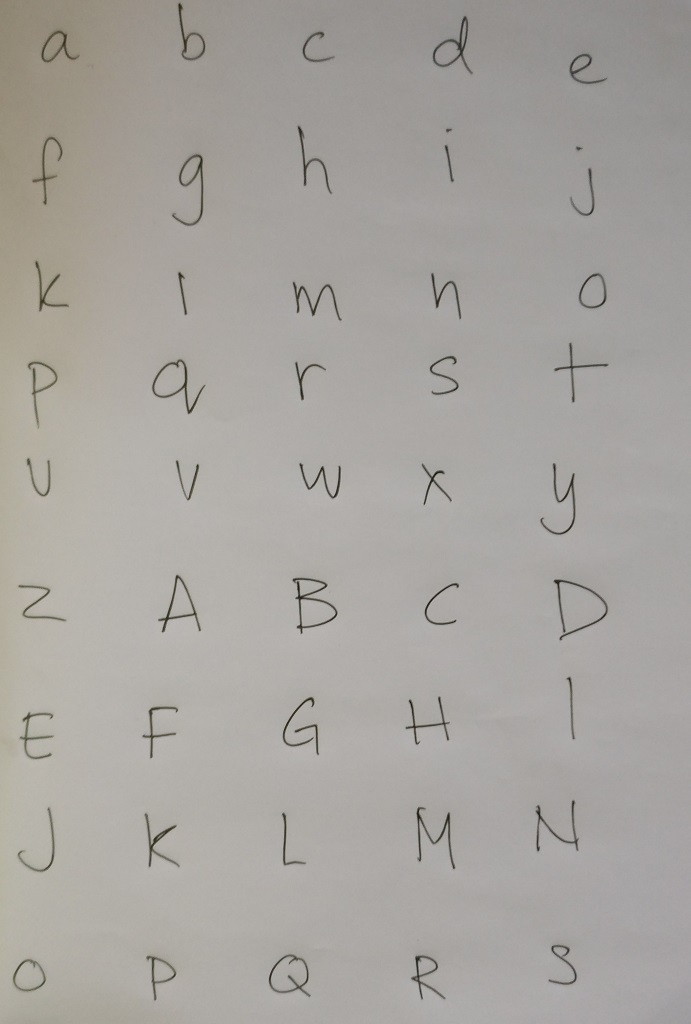 a b c d e
f g h i j
k l m n o
p q r s t
u v w x y
z A B C D
E F G H I
J K L M N
O P Q R S